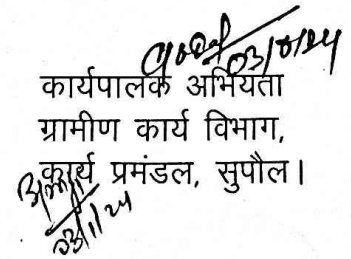 03/8/24
कार्यपालक अभियंता
ग्रामीण कार्य विभाग,
कार्य प्रमंडल, सुपौल।
03/1/24